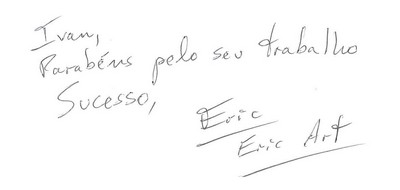 Ivan,
Parabéns pelo seu trabalho
Sucesso,
Eric
Eric Art